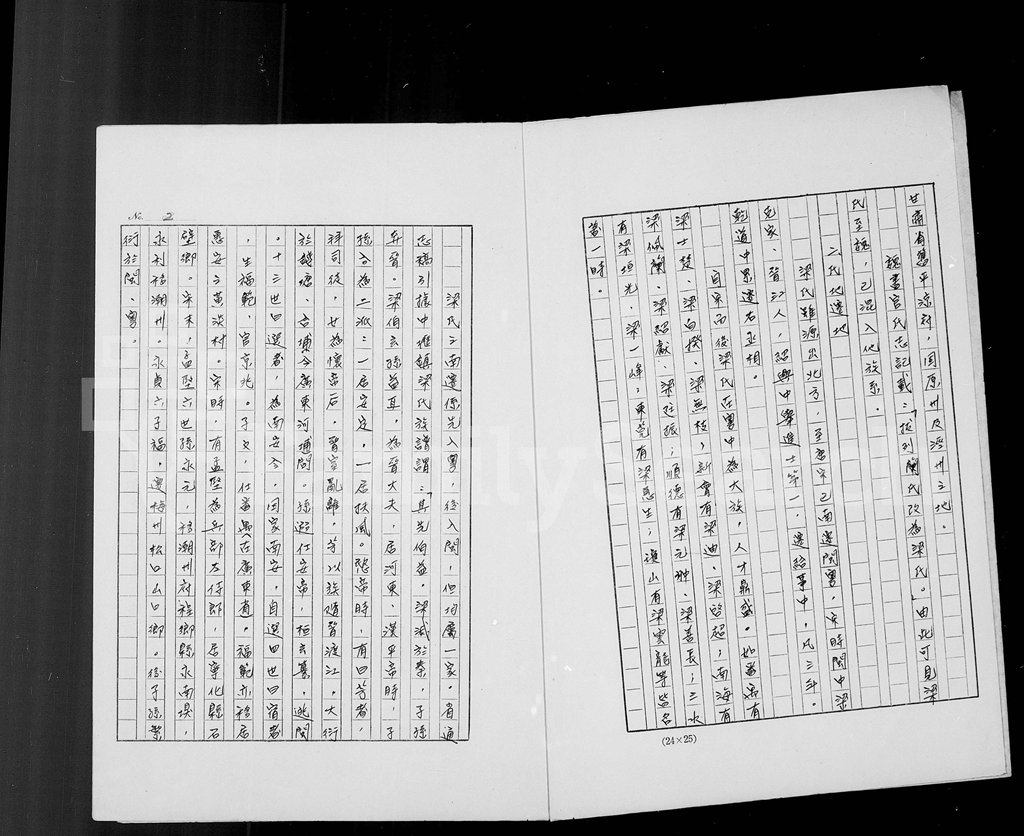 甘肅省舊平涼府,固原州及涇州之地。
魏書官氏志記載:「拔列蘭氏改為梁氏。」由此可見梁
氏至魏,已混入他族系。
三氏代遷地
梁氏雖源出北方,至唐宋已南遷閩粵,宋時閩中梁
克家、晉江人,紹興中舉進士第一,遷給事中,凡三年。
乾道中累遷右丞相。
自宋而後梁氏在粵中為大族,人才鼎盛。如番禺有
梁士楚、梁向揆、梁無技;新會有梁迪、梁啓超;南海有
梁佩蘭、梁紹獻、梁柱振;順德有梁元柳、梁善長;三水
有梁垣光、梁一峰;東莞有梁憲生;瓊山有梁雲龍等皆名
當一時。
(24×25)
No. 2
梁氏之南遷係先入粵,後入閩,但均屬一家。省通
志稿引樣中堆鎮梁氏族譜謂:「其先伯益。梁滅於秦,子孫
奔晉。梁伯玄孫益耳,為晉大夫,居河東、漢平帝時,子
孫分為二派:一居安定,一居扶風。愍帝時,有曰芳者,
拜司後,女為懷帝后,晉室亂離,芳以族隨晉渡江,大衍
於錢塘,古埔今廣東河埔閩。孫遐仕安帝,桓玄篡,逃閩
。十三世曰選者,為南安令,因家南安,自選四世曰宿者
,生福範,官京兆。子文,仕番禺在廣東省。福範亦移居
惠安之黃淡村。宋時,有孟堅為兵部左侍郎,居寧化縣石
壁鄉。宋末,孟堅六世孫永元,移潮州府程鄉縣永南堤,
永利移潮州。永貞六子福,遷梅州松口山口鄉。後子孫繁
衍於閩、粵。